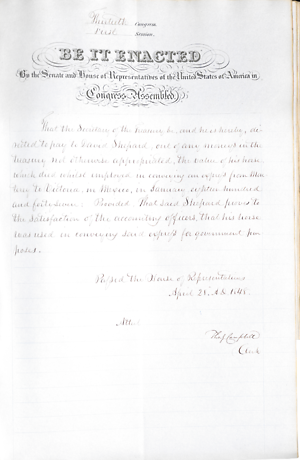 Thirtieth Congress
First Session
BE IT ENACTED
By the Senate and House of Representatives of the United States of America in
Congress Assembled
That the Secretary of the Treasury be, and he is hereby, di-
rected to pay to David Shepard out of any moneys in the
Treasury not otherwise appropriated, the value of his horse
which died whilst employed in conveying an express from
to Victoria, in Mexico, in January eighteen hundred
and forty seven: Provided That said Sheppard proves to
the satisfaction of the accounting officers, that his horse
was used in conveying said express for government pur
poses.
Passed the House of Representatives
April 21. A D 1848.
Att
Campbell
Clerk